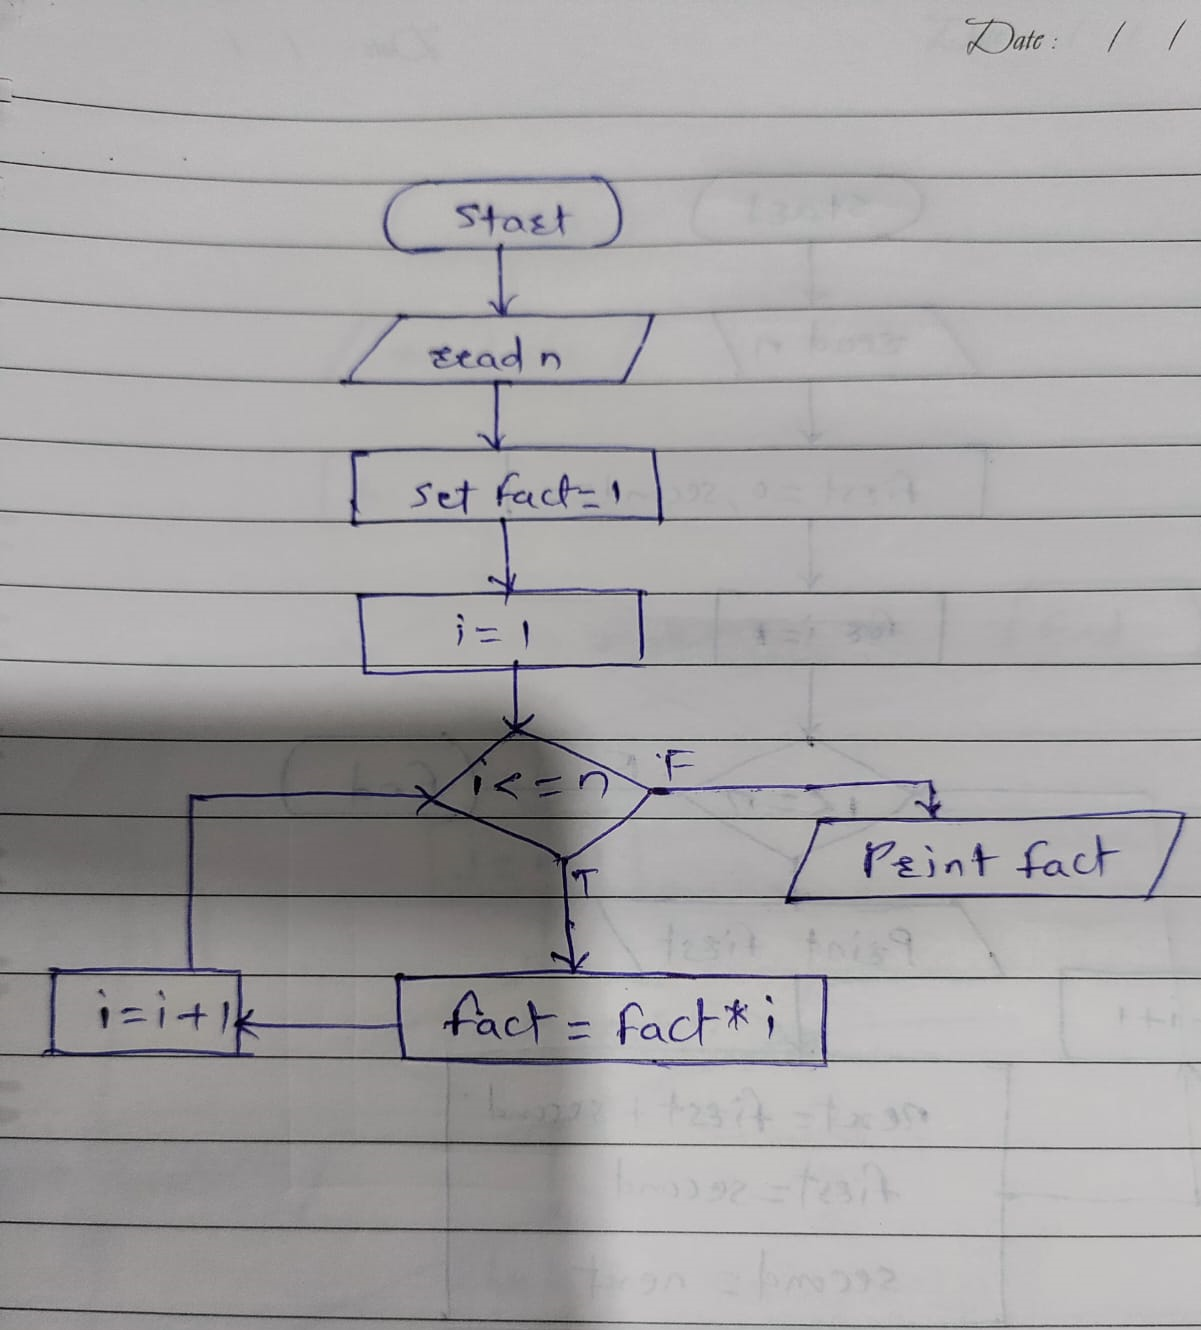 Date: / /
Start
read n
set fact=1
i=1
i<=n
F
T
Print fact
i=i+1
fact=fact*i